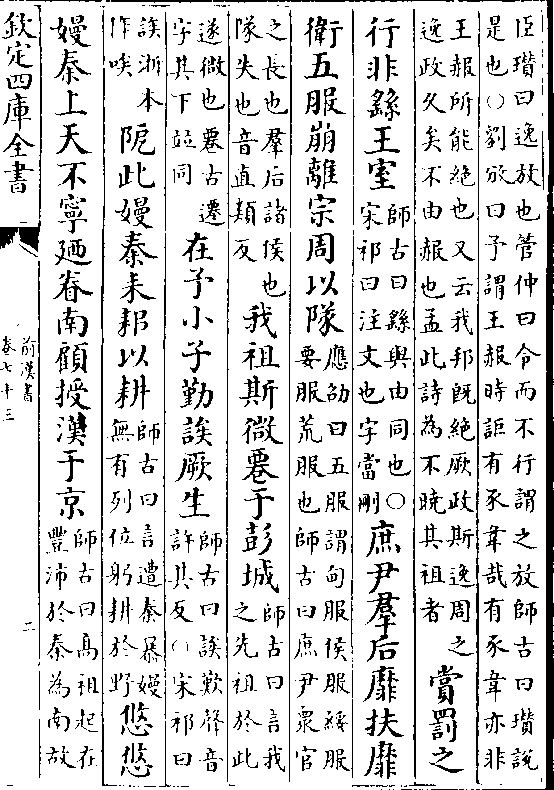 臣瓚曰逸放也管仲曰令而不行謂之放師古曰瓚說
是也○劉攽曰予謂王赧時詎有豕韋哉有豕韋亦非
王赧所能絶也又云我邦既絶厥政斯逸周之
逸政久矣不由赧也孟此詩為不曉其祖者
賞罰之
行非繇王室
師古曰繇與由同也○
宋祁曰注文也字當刪
庶尹羣后靡扶靡
衛五服崩離宗周以隊
應劭曰五服謂甸服侯服綏服
要服荒服也師古曰庶尹衆官
之長也羣后諸侯也
隊失也音直類反
我祖斯微䙴于彭城
師古曰言我
之先祖於此
遂微也䙴古遷
字其下竝同
在予小子勤誒厥生
師古曰誒歎聲音
許其反○宋祁曰
誒浙本
作唉
阸此嫚秦耒耜以耕
師古曰言遭秦暴嫚
無有列位躬耕於野
悠悠
嫚秦上天不寧廼眷南顧授漢于京
師古曰高祖起在
豐沛於秦為南故
欽定四庫全書
前漢書
卷七十三
二